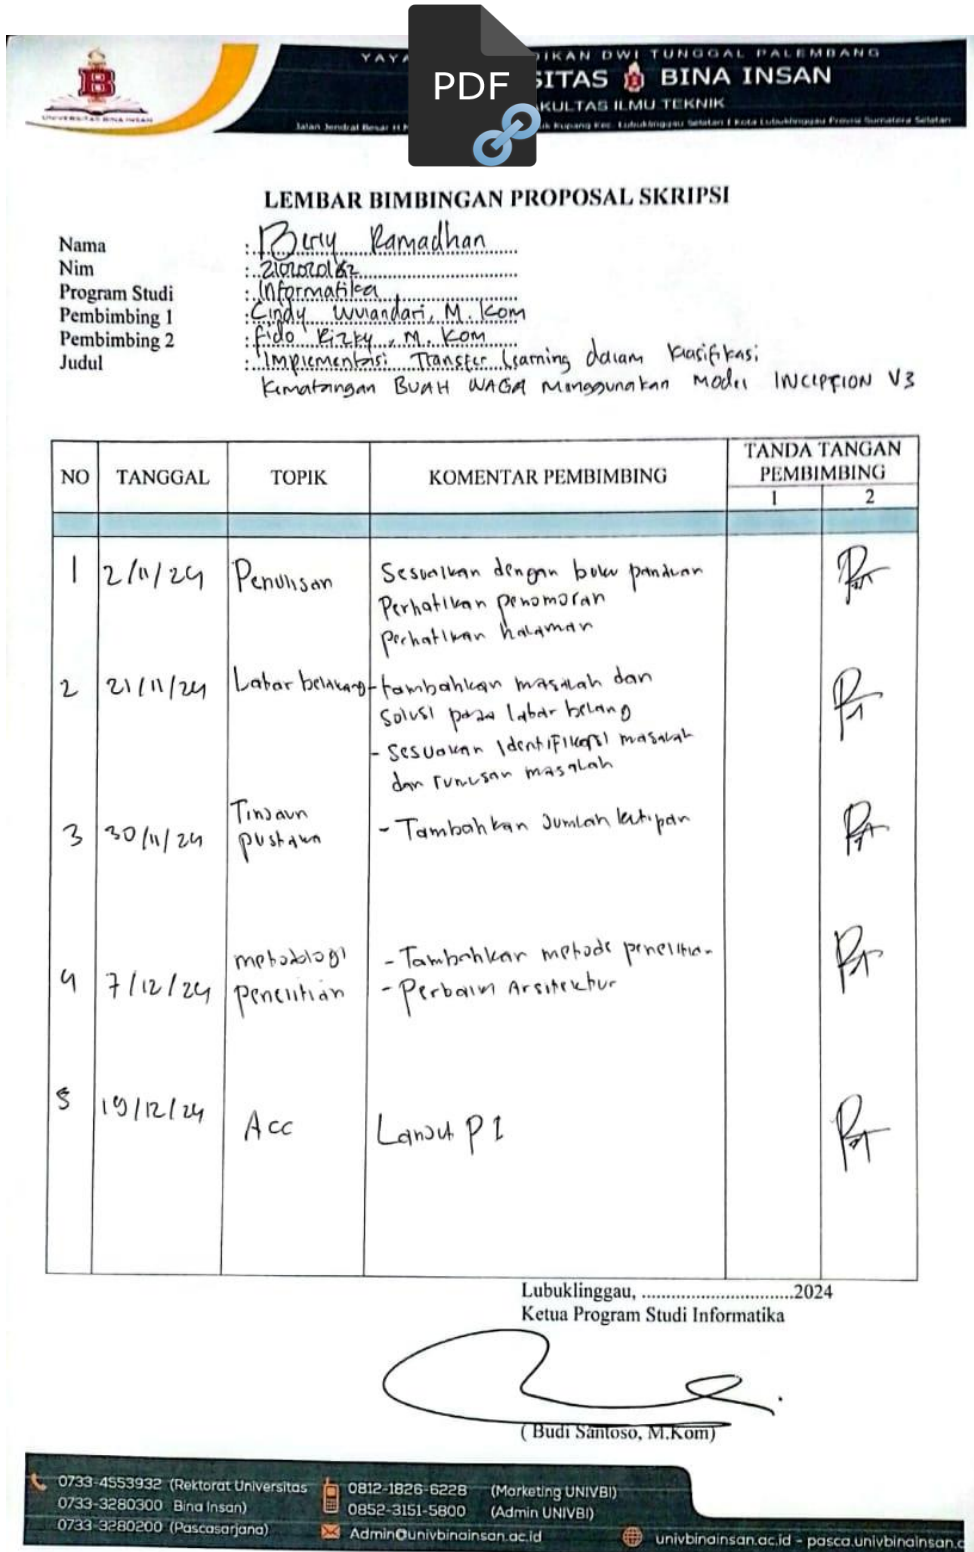 PDF
YAYA DIKAN DWI TUNGGAL PALEMBANG
SITAS BINA INSAN
KULTAS ILMU TEKNIK
UNIVERSITAS BINA INSAN
Jalan Jendral Besar H k Kupang Kec. Lubuklinggau Selatan I Kota Lubuklinggau Provisi Sumatera Selatan
LEMBAR BIMBINGAN PROPOSAL SKRIPSI
Nama : Beriy Ramadhan
Nim : 2102020162
Program Studi : Informatika
Pembimbing 1 : Cindy Wulandari, M. Kom
Pembimbing 2 : Fido Rizky, M. Kom
Judul : Implementasi Transfer Learning dalam Klasifikasi
Kematangan BUAH NAGA Menggunakan Model INCEPTION V3
NO TANGGAL TOPIK KOMENTAR PEMBIMBING TANDA TANGAN PEMBIMBING
1 2
1 2/11/24 Penulisan Sesuaikan dengan buku panduan
Perhatikan penomoran
Perhatikan halaman
2 21/11/24 Latar belakang - tambahkan masalah dan
solusi pada latar belang
- Sesuaikan Identifikasi masalah
dan rumusan masalah
3 30/11/24 Tinjaun pustaka - Tambahkan Jumlah kutipan
4 7/12/24 metodologi penelitian - Tambahkan metode penelitian
- Perbaiki Arsitektur
5 19/12/24 Acc Lanjut P1
Lubuklinggau, ..............................2024
Ketua Program Studi Informatika
( Budi Santoso, M.Kom)
0733-4553932 (Rektorat Universitas
0733-3280300 Bina Insan)
0733-3280200 (Pascasarjana)
0812-1826-6228 (Marketing UNIVBI)
0852-3151-5800 (Admin UNIVBI)
Admin@univbinainsan.ac.id
univbinainsan.ac.id - pasca.univbinainsan.c